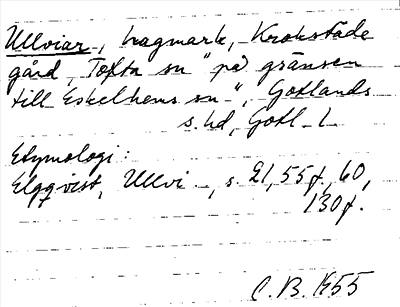 Ullviar, hagmark, Krokstäde
gård, Tofta sn "på gränsen
till Eskelhems sn-", Gotlands
s. hd, Gotl. l.
Etymologi:
Elgqvist, Ullvi-, s. 21, 55f, 60,
130f.
C. B. 1955